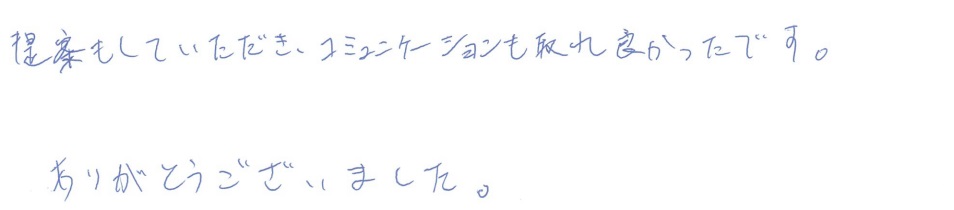 提案もしていただき、コミュニケーションも取れ良かったです。
ありがとうございました。